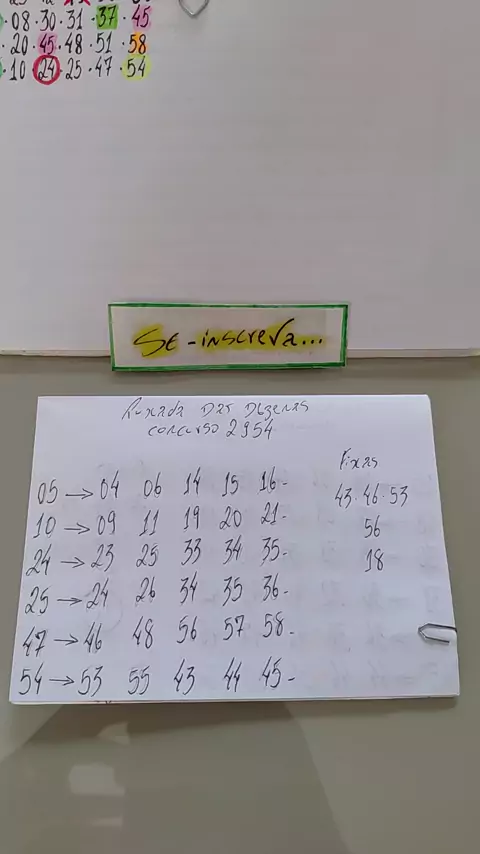 08·30·31·37·45
20·45·48·51·58
·10·24·25·47·54
Se-inscreva...
Puxada das dezenas
concurso 2954
05→04 06 14 15 16-
10→09 11 19 20 21-
24→23 25 33 34 35-
25→24 26 34 35 36-
47→46 48 56 57 58-
54→53 55 43 44 45-
Fixas
43·46·53
56
18